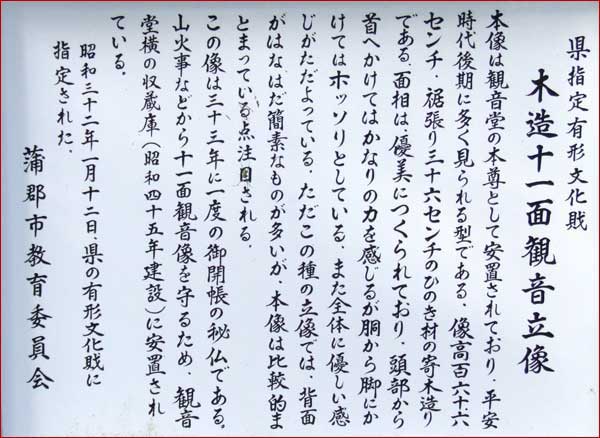 県指定有形文化財
木造十一面観音立像
本像は観音堂の本尊として安置されており、平安
時代後期に多く見られる型である。像高百六十六
センチ、裾張り三十六センチのひのき材の寄木造り
である。面相は優美につくられており、頭部から
首へかけてはかなりの力を感じるが胴から脚にか
けてはホッソリとしている。また全体に優しい感
じがただよっている。ただこの種の立像では、背面
がはなはだ簡素なものが多いが、本像は比較的ま
とまっている点注目される。
この像は三十三年に一度の御開帳の秘仏である。
山火事などから十一面観音像を守るため、観音
堂横の収蔵庫(昭和四十五年建設)に安置され
ている。
昭和三十二年一月十二日、県の有形文化財に
指定された。
蒲郡市教育委員会